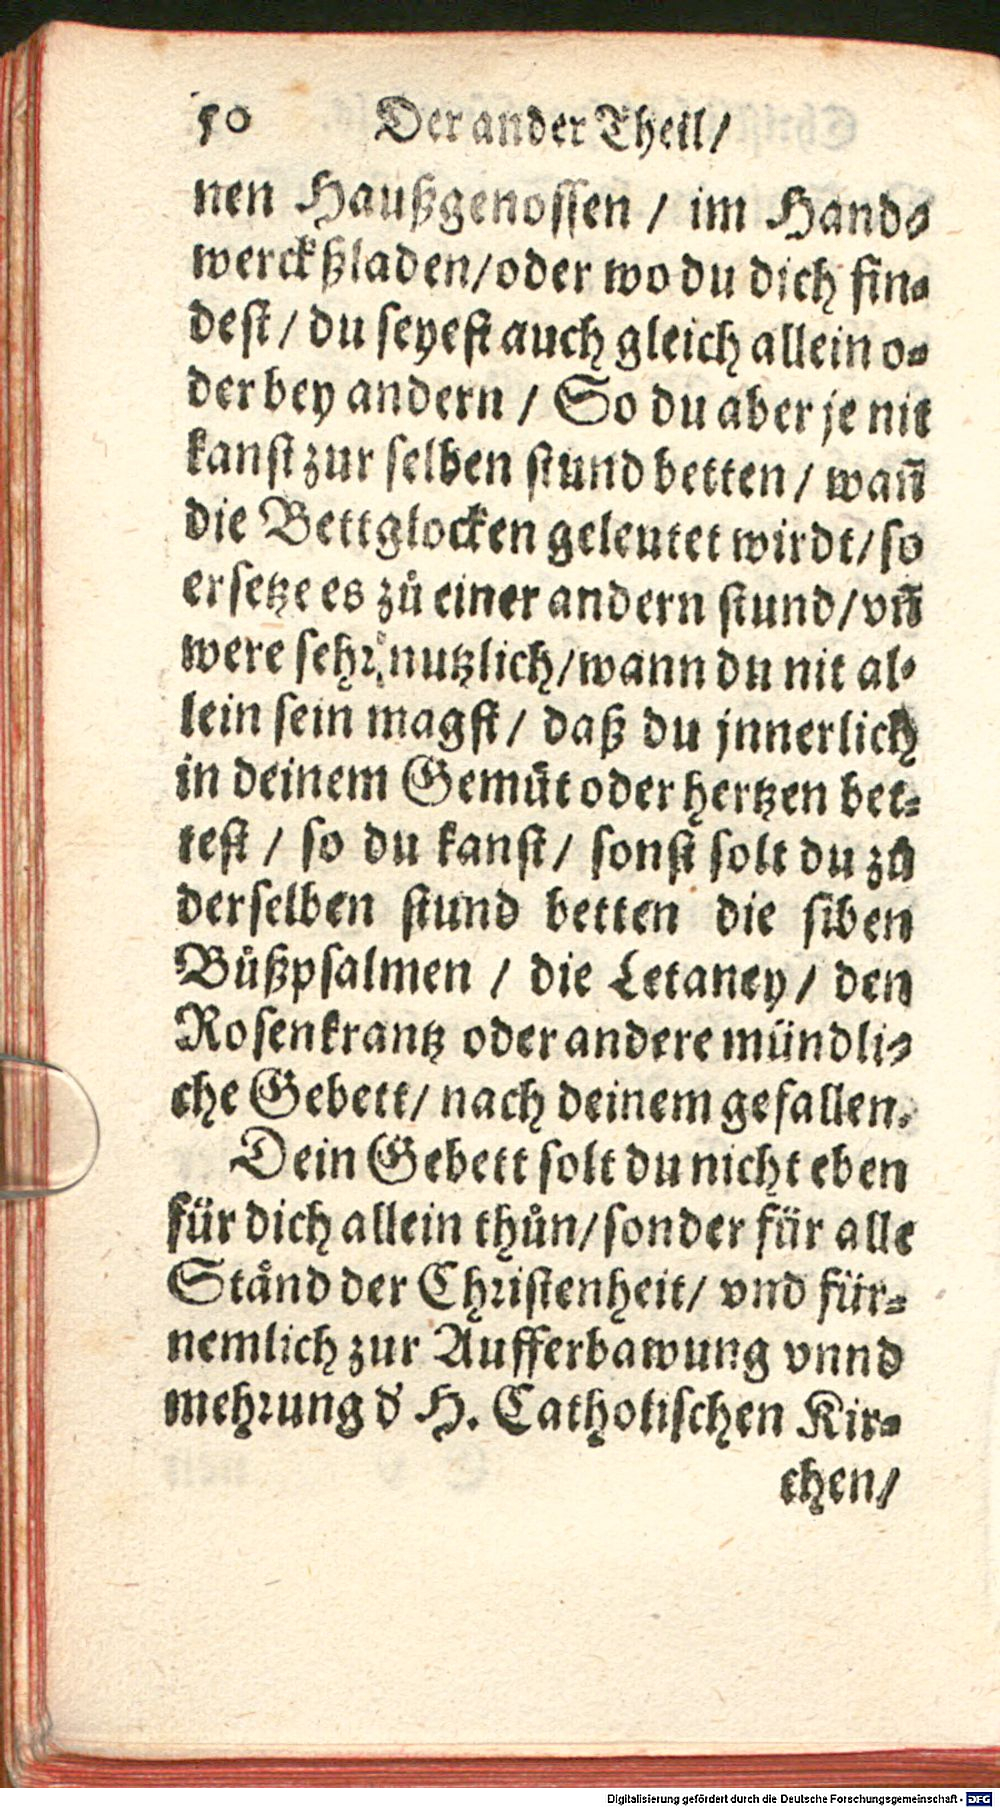 50 Der ander Theil/
nen Haußgenossen / im Hand⸗
werckßladen/oder wo du dich fin⸗
dest/ du seyest auch gleich allein o⸗
der bey andern / So du aber je nit
kanst zur selben stund betten/ wañ
die Bettglocken geleutet wirdt/so
ersetze es zů einer andern stund/vñ
were sehr nutzlich/wann du nit al⸗
lein sein magst/ daß du jnnerlich
in deinem Gemüt oder hertzen bet⸗
test / so du kanst/ sonst solt du zů
derselben stund betten die siben
Bůßpsalmen / die Letaney/ den
Rosenkrantz oder andere mündli⸗
che Gebett/ nach deinem gefallen.
Dein Gebett solt du nicht eben
für dich allein thůn/sonder für alle
Ständ der Christenheit/ vnd für⸗
nemlich zur Aufferbawung vnnd
mehrung d' H. Catholischen Kir⸗
chen/
Digitalisierung gefördert durch die Deutsche Forschungsgemeinschaft - DFG